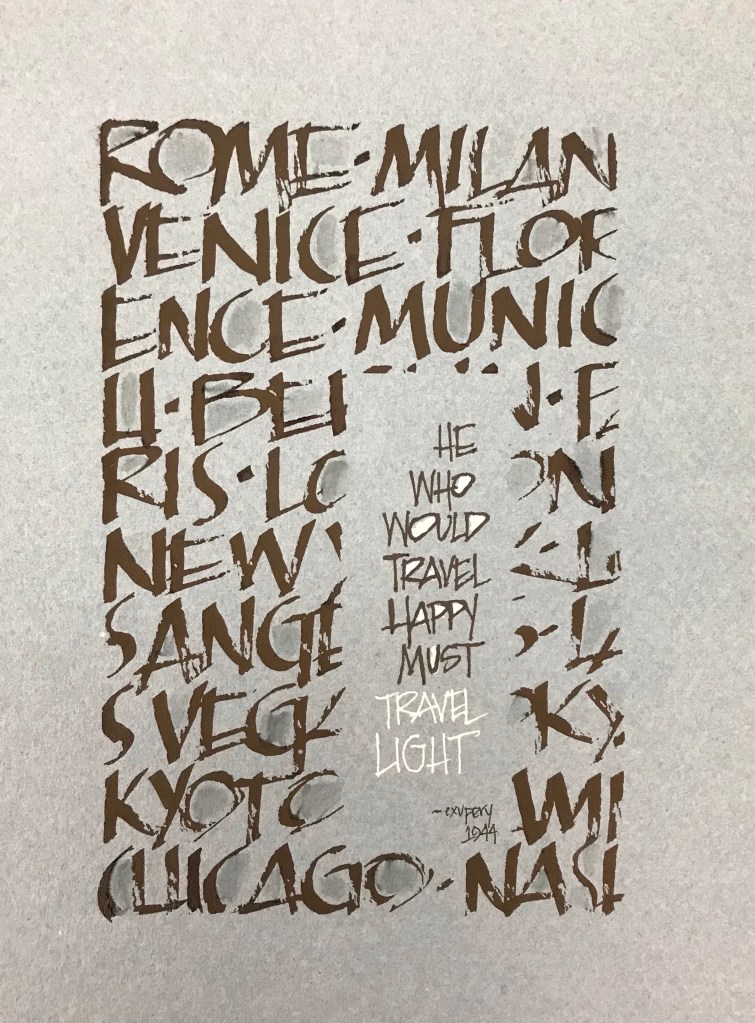 ROME·MILAN
VENICE·FLOR
ENCE·MUNIC
H·BER
RIS·LO ON
NEW
SANGE
S VEGA KY
KYOTO
CHICAGO·NASH
HE
WHO
WOULD
TRAVEL
HAPPY
MUST
TRAVEL
LIGHT
~exupery
1944